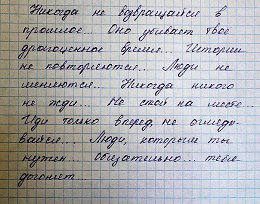 Никогда не возвращайся в
прошлое... Оно убивает твоё
драгоценное время... Истории
не повторяются... Люди не
меняются... Никогда никого
не жди... Не стой на месте...
Иди только вперед, не огляды-
вайся... Люди, которым ты
нужен... Обязательно... тебя
догонят...